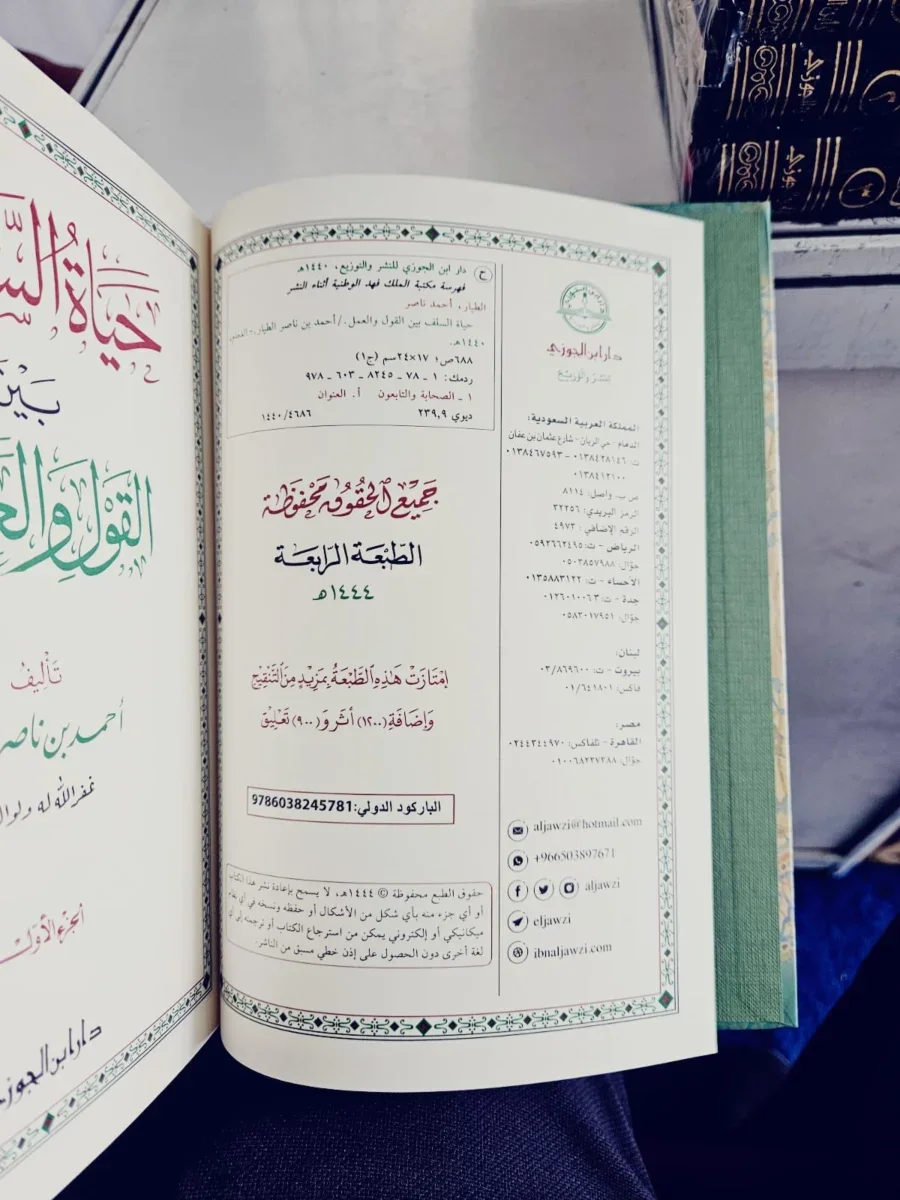 دار ابن الجوزي للنشر والتوزيع، ١٤٤٠هـ
فهرسة مكتبة الملك فهد الوطنية أثناء النشر
الطيار، أحمد ناصر
حياة السلف بين القول والعمل./ أحمد بن ناصر الطيار.-
١٤٤٠هـ.
٦٨٨ص؛ ١٧×٢٤سم (ج١)
ردمك: ١ - ٧٨ - ٨٢٤٥ - ٦٠٣ - ٩٧٨
١ - الصحابة والتابعون أ. العنوان
ديوي ٢٣٩,٩ ١٤٤٠/٤٦٨٦
جَمِيعُ الحُقُوقِ مَحْفُوظَة
الطّبْعَة الرّابِعَة
١٤٤٤هـ
اِمْتَازَتْ هَذِهِ الطَّبْعَةُ بِمَزِيدٍ مِنَ التَّنْقِيحِ
وَإِضَافَةِ (١٢٠٠) أَثَر وَ (٩٠٠) تَعْلِيق
الباركود الدولي: 9786038245781
حقوق الطبع محفوظة © ١٤٤٤هـ، لا يسمح بإعادة نشر هذا الكتاب
أو أي جزء منه بأي شكل من الأشكال أو حفظه ونسخه في أي نظام
ميكانيكي أو إلكتروني يمكن من استرجاع الكتاب أو ترجمته إلى أي
لغة أخرى دون الحصول على إذن خطي مسبق من الناشر.
دار ابن الجوزي
للنشر والتوزيع
المملكة العربية السعودية:
الدمام - حي الريان - شارع عثمان بن عفان
ت: ٠١٣٨٤٢٨١٤٦ - ٠١٣٨٤٦٧٥٩٣
٠١٣٨٤١٢١٠٠
ص ب. واصل: ٨١١٤
الرمز البريدي: ٣٢٢٥٦
الرقم الإضافي: ٤٩٧٣
الرياض - ت: ٠٥٩٢٦٦٢٤٩٥
جوّال: ٠٥٠٣٨٥٧٩٨٨
الأحساء - ت: ٠١٣٥٨٨٣١٢٢
جدة - ت: ٠١٢٦٠١٠٠٦٣
جوّال: ٠٥٨٣٠١٧٩٥١
لبنان:
بيروت - ت: ٠٣/٨٦٩٦٠٠
فاكس: ٠١/٦٤١٨٠١
مصر:
القاهرة - تلفاكس: ٠٢٤٤٣٤٤٩٧٠
جوّال: ٠١٠٠٦٨٢٣٧٣٨٨
aljawzi@hotmail.com
+966503897671
aljawzi
eljawzi
ibnaljawzi.com
حَيَاةُ
بَيْنَ
القَوْلِ وَ
تَأْلِيفُ
أحمد بن ناصر
غفر الله له
الجزء الأول
دار ابن الجوزي